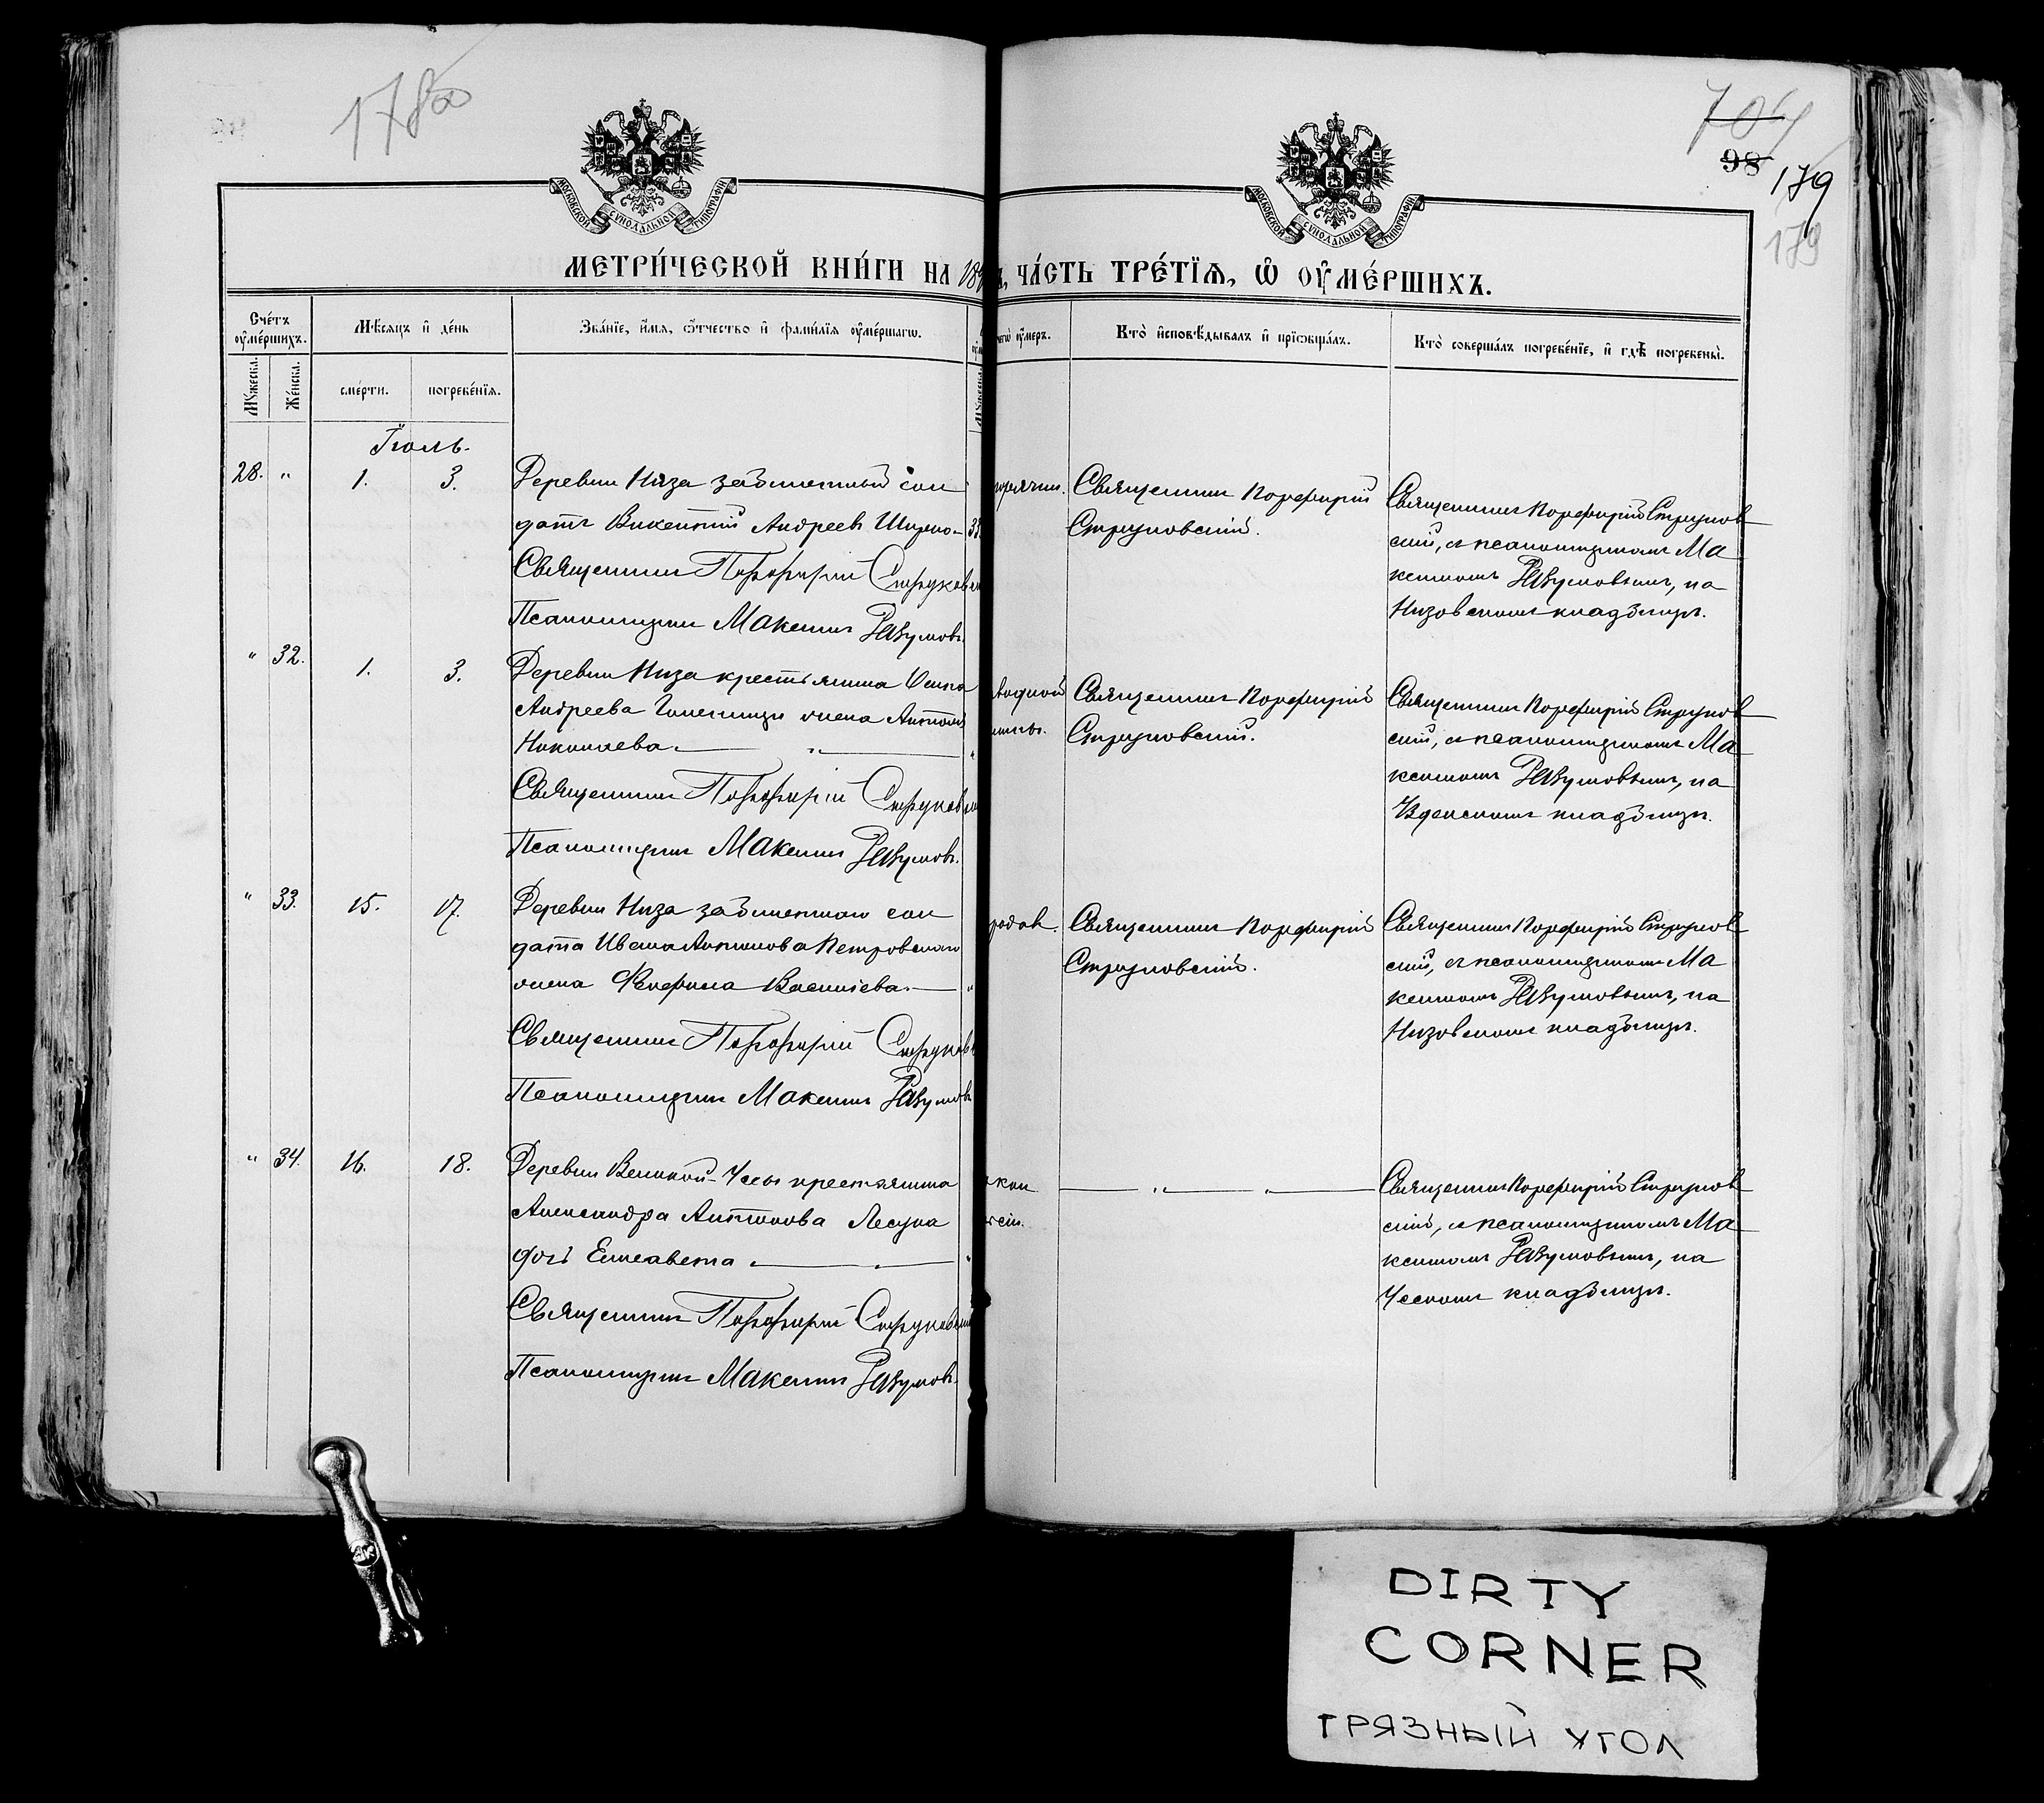 178об
704
98
179
179
МОСКОВСКОЙ СУНОДАЛЬНОЙ ТИПОГРАФІИ
МОСКОВСКОЙ СУНОДАЛЬНОЙ ТИПОГРАФІИ
МЕТРИ́ЧЕСКОЙ КНИ́ГИ НА 189
ЧА́СТЬ ТРЕ́ТЇѦ, Ѡ҆ ОУ҆МЕ́РШИХЪ.
Сче́тъ оу҆ме́ршихъ.
Мѣ́сяцъ и҆ де́нь
Зва́нїе, и҆́мя, ѻ҆́тчество и҆ фами́лїя оу҆ме́ршагѡ.
оу҆ме́ръ.
Кто̀ и҆сповѣ́дывалъ и҆ прїѡбща́лъ.
Кто̀ соверша́лъ погребе́нїе, и҆ гдѣ̀ погребены̀.
Мꙋ́жеска.
Же́нска.
сме́рти.
погребе́нїя.
Іюль.
28. " 1. 3.
Деревни Низа забилетный сол
датъ Викентій Андреевъ
Священникъ Порфирій Струковск
Псаломщикъ Максимъ Разумовъ.
горячки.
Священникъ Порфирій
Струковскій.
Священникъ Порфирій Струков
скій, съ псаломщикомъ Ма
ксимомъ Разумовымъ, на
Низовскомъ кладбищѣ.
" 32. 1. 3.
Деревни Низа крестьянина Осипа
Андреева жена
Николаева.
Священникъ Порфирій Струковск
Псаломщикъ Максимъ Разумовъ.
Священникъ Порфирій
Струковскій.
Священникъ Порфирій Струков
скій, съ псаломщикомъ Ма
ксимомъ Разумовымъ, на
кладбищѣ.
" 33. 15. 17.
Деревни Низа забилетнаго сол
дата Ивана Антонова Петровскаго
жена Васильева.
Священникъ Порфирій Струковск
Псаломщикъ Максимъ Разумовъ
родов.
Священникъ Порфирій
Струковскій.
Священникъ Порфирій Струков
скій, съ псаломщикомъ Ма
ксимомъ Разумовымъ, на
Низовскомъ кладбищѣ.
" 34. 16. 18.
Деревни Великой-Усы крестьянина
Александра Антонова Лесука
дочь Елисавета
Священникъ Порфирій Струковскій
Псаломщикъ Максимъ Разумовъ.
Священникъ Порфирій Струков
скій, съ псаломщикомъ Ма
ксимомъ Разумовымъ, на
Усскомъ кладбищѣ.
DIRTY
CORNER
ГРЯЗНЫЙ УГОЛ